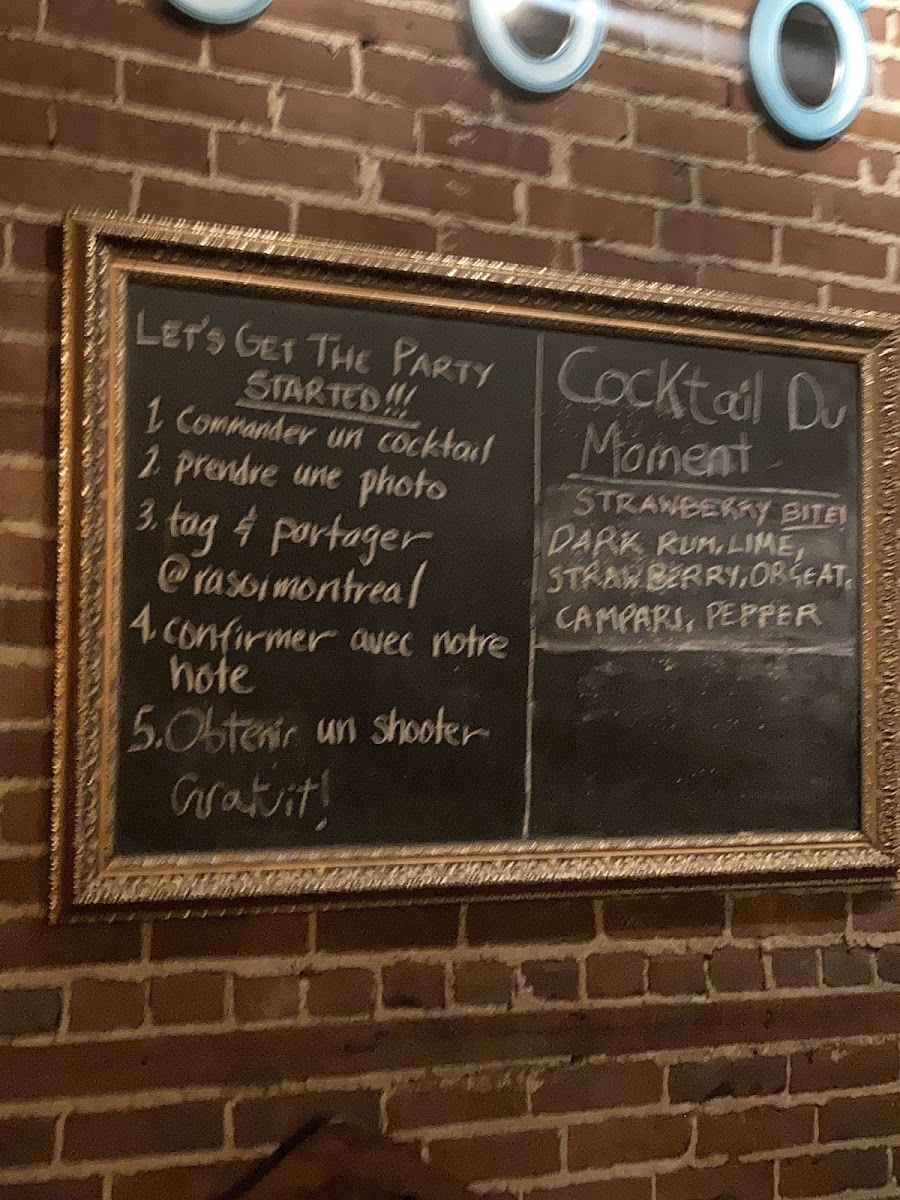 LET'S GET THE PARTY
STARTED!!!
1. Commander un cocktail
2. prendre une photo
3. tag & partager
@rasoimontreal
4. confirmer avec notre
hote
5. Obtenir un shooter
Gratuit!
Cocktail Du
Moment
STRAWBERRY BITE!
DARK RUM, LIME,
STRAWBERRY, ORGEAT,
CAMPARI, PEPPER